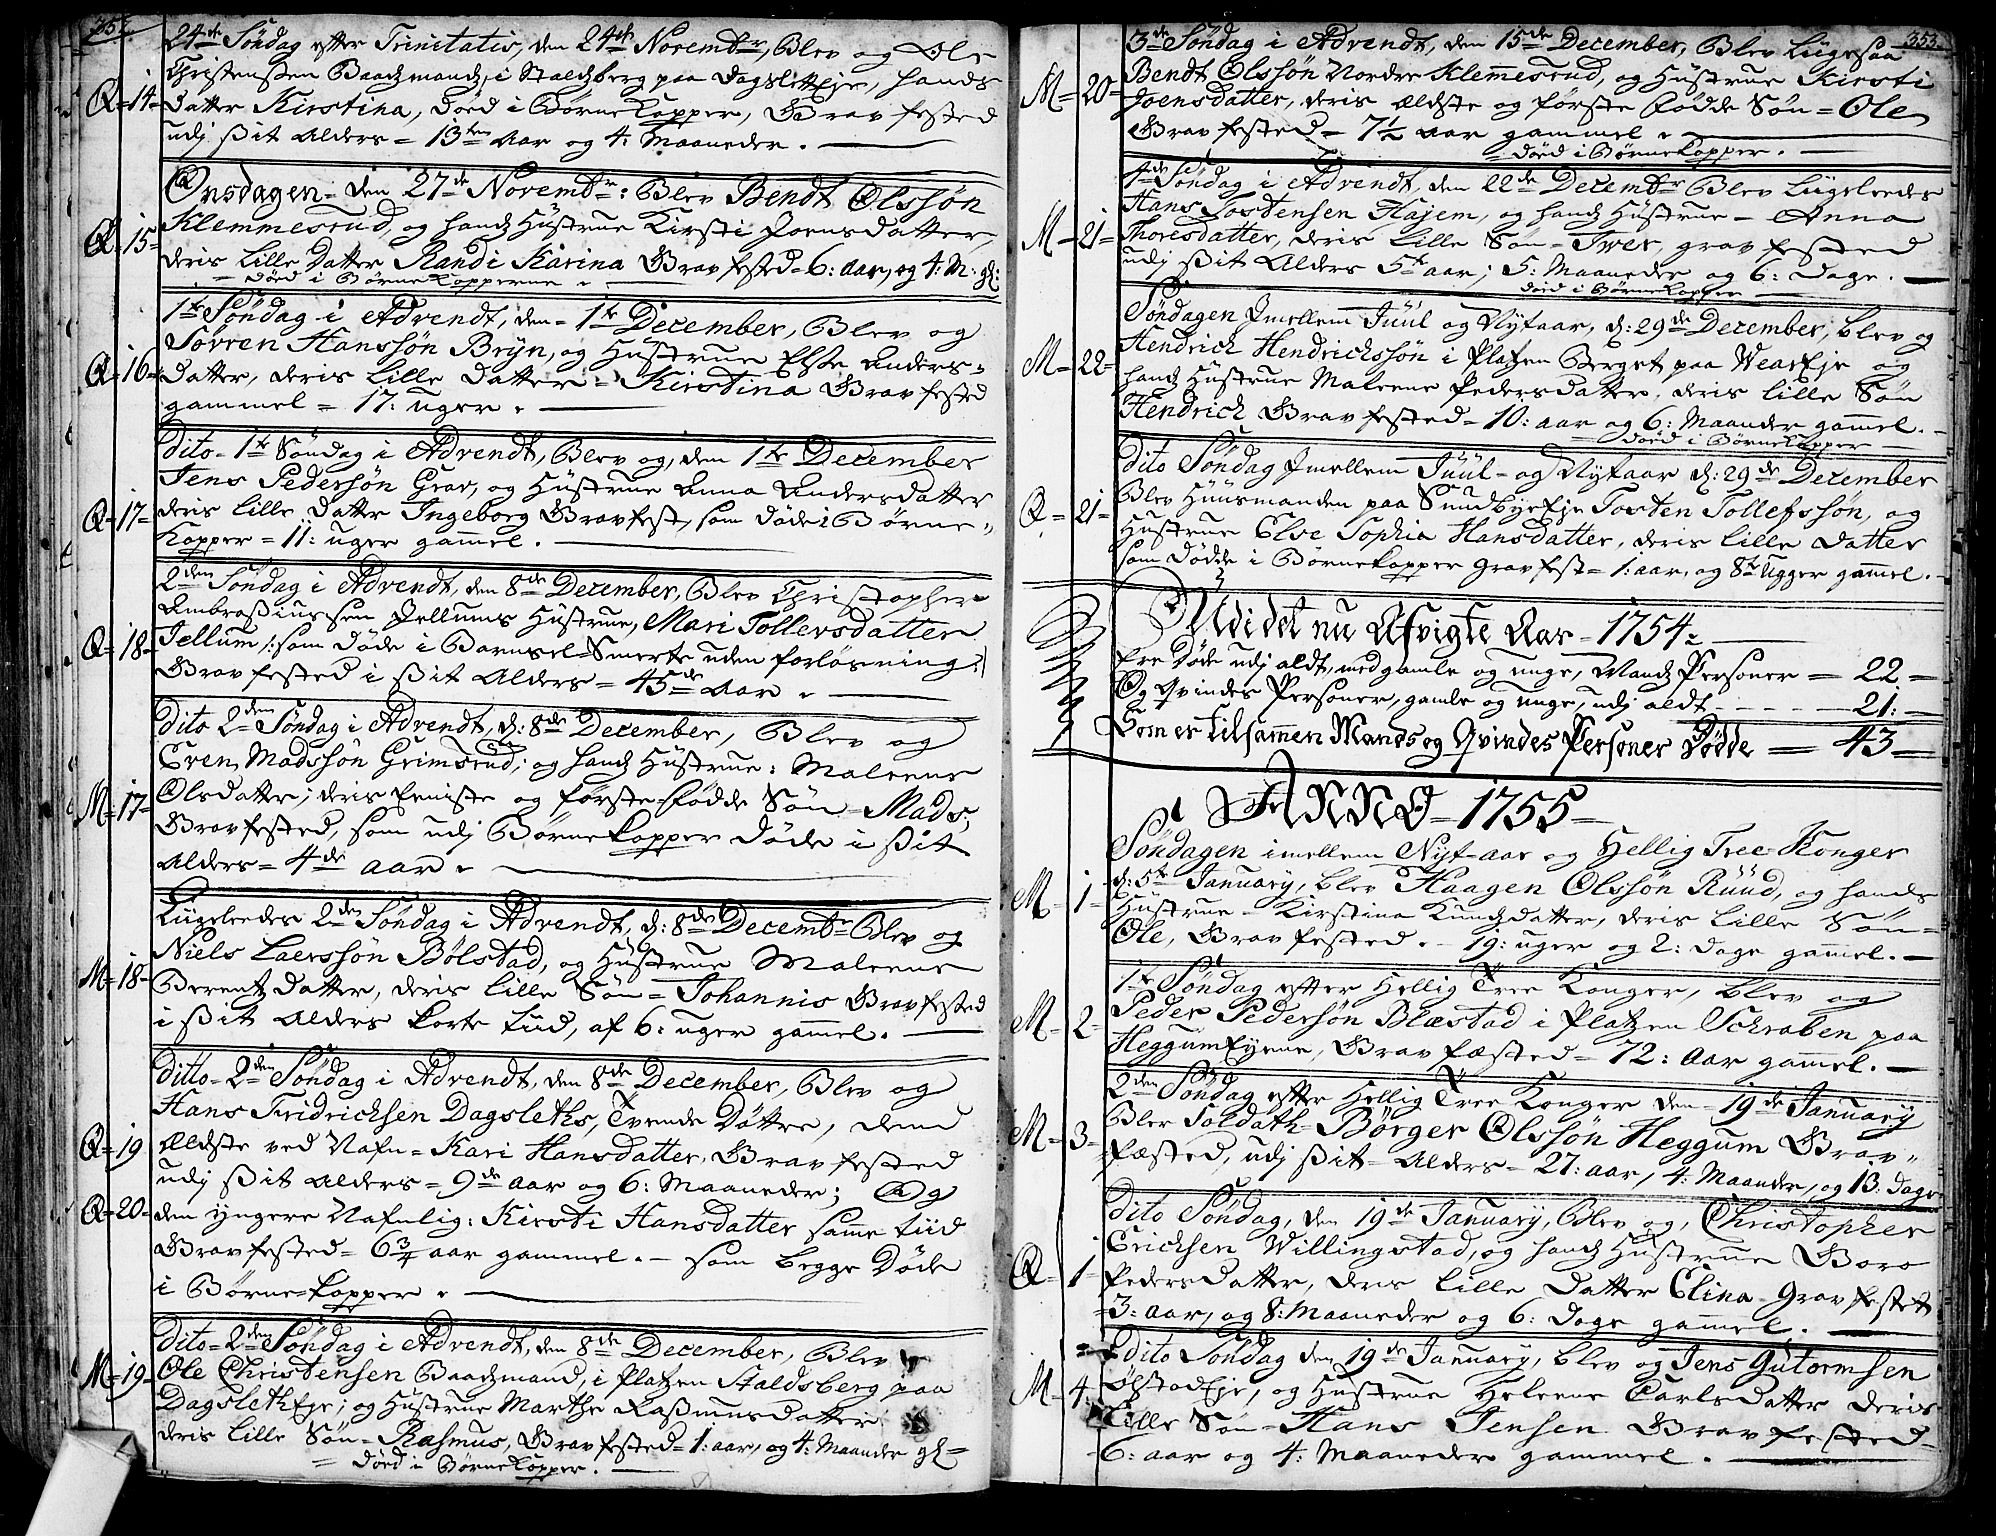 352.
24de Søndag efter Trinitatis, den 24de Novembr, Blev og Ole
Christensen Baadzmand, i Staldzberg paa DagslittEje, hands
Q = 14 = Datter Kirstina, død i Børne Kopper, Gravfested
udj sit Alders = 13ten Aar og 4: Maaneder.
Onsdagen = den 27de Novembr: Blev Bendt Olssøn
Klemmesrud, og handz Hustrue Kirsti Joensdatter,
Q = 15 = deris lille Datter Randi Karina Gravfested = 6: aar, og 4: M: gl:
= død i Børne Kopperne.
1te Søndag i Advendt, den = 1te December, Blev og
Sørren Hanssøn Bryn, og Hustrue Else Anders=
Q = 16 = datter, deris lille Datter = Kirstina Gravfested
gammel = 17: uger.
Dito = 1te Søndag i Advendt, Blev og, den 1te December
Jens Pedersøn Grav, og Hustrue Anna Andersdatter
Q = 17 = deris lille Datter Ingeborg Gravfest, som døde i Børne=
Kopper = 11: uger gammel.
2den Søndag i Advendt, den 8de December, Blev Christopher
Ambrosiussen Jellums Hustrue, Mari Tollersdatter
Q = 18 = Jellum /: som døde i Barnsel=Smerte uden forløsning :/
Gravfested i sit Alders = 45de Aar.
Dito 2den Søndag i Advendt, d: 8de December, Blev og
Even Madssøn Grimsrud, og handz Hustrue: Maleene
M = 17 = Olsdatter; deris Eeniste og første fødde Søn = Mads,
Gravfested, som udj Børnekopper døde i sit
Alders = 4de aar.
Liigeleedes 2den Søndag i Advendt, d: 8de Decembr Blev og
Niels Laerssøn Bølstad, og Hustrue Maleene
M = 18 = Berentzdatter, deris lille Søn = Johannis Gravfested
i sit Alders korte tiid, af 6: uger gammel.
Ditto = 2den Søndag i Advendt, den 8de December, Blev og
Hans Fridrichsen Dagsleths, Tvende Døttre, den
Q = 19 Ældste ved Nafn = Kari Hansdatter, Gravfested
udj sit Alders = 9de Aar og 6: Maaneder; Og
Q = 20 = den yngere Nafnlig: Kirsti Hansdatter samme tiid
Gravfested = 6 3/4 aar gammel. = som begge Døde
i Børne=kopper.
Dito = 2den Søndag i Advendt, den 8de December, Blev
M = 19 = Ole Christensen Baadzmand, i Platzen Staldsberg paa
DagslethEje, og Hustrue Marthe Rasmusdatter
deris lille Søn = Rasmus, Gravfested = 1: aar, og 4: Maaneder gl=
= død i Børnekopper.
353.
3de Søndag i Advendt, den 15de December, Blev liigesaa
M = 20 = Bendt Olssøn Nordre Klemmesrud, og Hustrue Kirsti
Joensdatter, deris Ældste og første fødde Søn = Ole
Gravfested = 7 1/2 aar gammel.
= død i Børnekopper.
4de Søndag i Advendt, den 22de Decembr Blev liigeleedes
Hans Tostensen Hajem, og handz Hustrue = Anna
M = 21 = Thoresdatter, deris lille Søn = Iver, gravfested
udj sit Alders 5te aar; 5: Maaneder og 6: Dage.
død i Børnekopper
Søndagen Imellem Juul og Nytaar, d: 29de December, blev og
M = 22 = Hendrich Hendrichssøn i Platzen Berget paa WearEje og
handz Hustrue Maleene Pedersdatter, deris lille Søn
Hendrich Gravfested = 10: aar og 6: Maaneder gammel.
= død i Børnekopper
Dito Søndag Imellem Juul = og Nytaar d: 29de December
Q = 21 = Blev Huusmanden paa SundbyeEje Tosten Tollefssøn, og
Hustrue Else Sophia Hansdatter, deris lille Datter
som Døde i Børnekopper gravfest = 1: aar, og 8te Ugger gammel.
Udi det nu Afvigte Aar = 1754 =
Ere døde udj aldt, med gamle og unge, Mandz Personer = 22 =
Og Qvindes Personer, gamle og unge, udj aldt - - - - - 21: =
Som er tilsammen Mands og Qvindes Personer Dødde = 43 =
ANNO = 1755 =
Søndagen imellem Nyt=aar og Hellig Tree Konger
M = 1 = d: 5te January, blev Haagen Olssøn Ruud, og hands
Hustrue = Kirstina Knudzdatter, deris lille Søn =
Ole, Gravfested. = 19: uger og 2: Dage gammel.
1te Søndag efter Hellig Tree Konger, blev og
M = 2 = Peder Pedersøn Blæstad i Platzen Schraben paa
HeggumEyene, Gravfæsted = 72: Aar gammel.
2den Søndag efter Hellig Tree Konger den = 19de January
M = 3 = Blev Soldath = Børger Olssøn Heggum Grav=
fæsted, udj sit = Alders = 27: aar, 4: Maaneder, og 13: dage
Dito Søndag, den 19de January, Blev og, Christopher
Erichsen Willingstad, og handz Hustrue Boro
Q = 1 = Pedersdatter, deris lille Datter Elina = Gravfestet
= 3: aar, og 8: Maaneder og 6: Dage gammel.
= Dito Søndag den 19de January, blev og Jens Gutormsen
M = 4 = ØlstadEje, og Hustrue Heleene Carlsdatter deris
Lille Søn = Hans Jensen Gravfested =
6: aar og 4: Maaneder gammel.